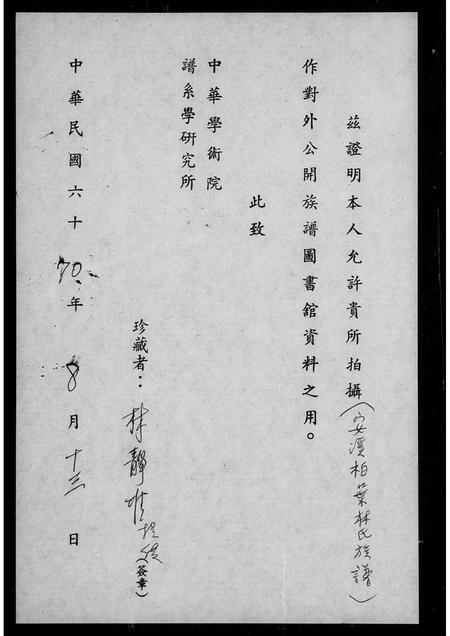 茲證明本人允許貴所拍攝(安溪柏葉林氏族譜)
作對外公開族譜圖書館資料之用。
此致
中華學術院
譜系學研究所
珍藏者:林靜 提供(簽章)
中華民國六十70年8月十三日